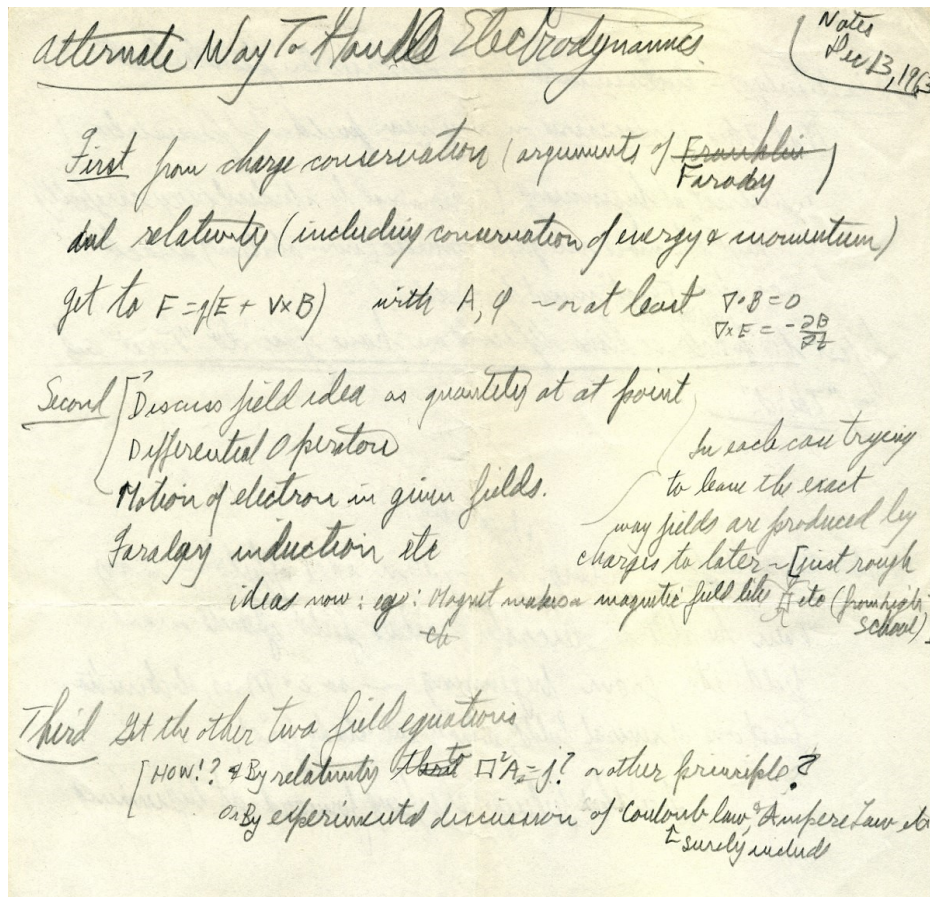 Alternate Way To Handle Electrodynamics.
Notes
Dec 13, 1963
First from charge conservation (arguments of Franklin
Farady)
and relativity (including conservation of energy & momentum)
get to F = q(E + V×B) with A, φ – or at least ∇•B = 0
∇×E = -∂B/∂t
Second [? Discuss field idea as quantities at at point
Differential Operators
Motion of electron in given fields.
Faraday induction etc
In each case trying
to leave the exact
way fields are produced by
charges to later – [just rough
ideas now: eg: Magnet makes a magnetic field like etc (from high
school).
Third Get the other two field equations
[HOW!? By relativity that □²A = j? or other principle?
Or By experiments discussion of Coulomb law, & Ampere Law, etc
↑ surely include